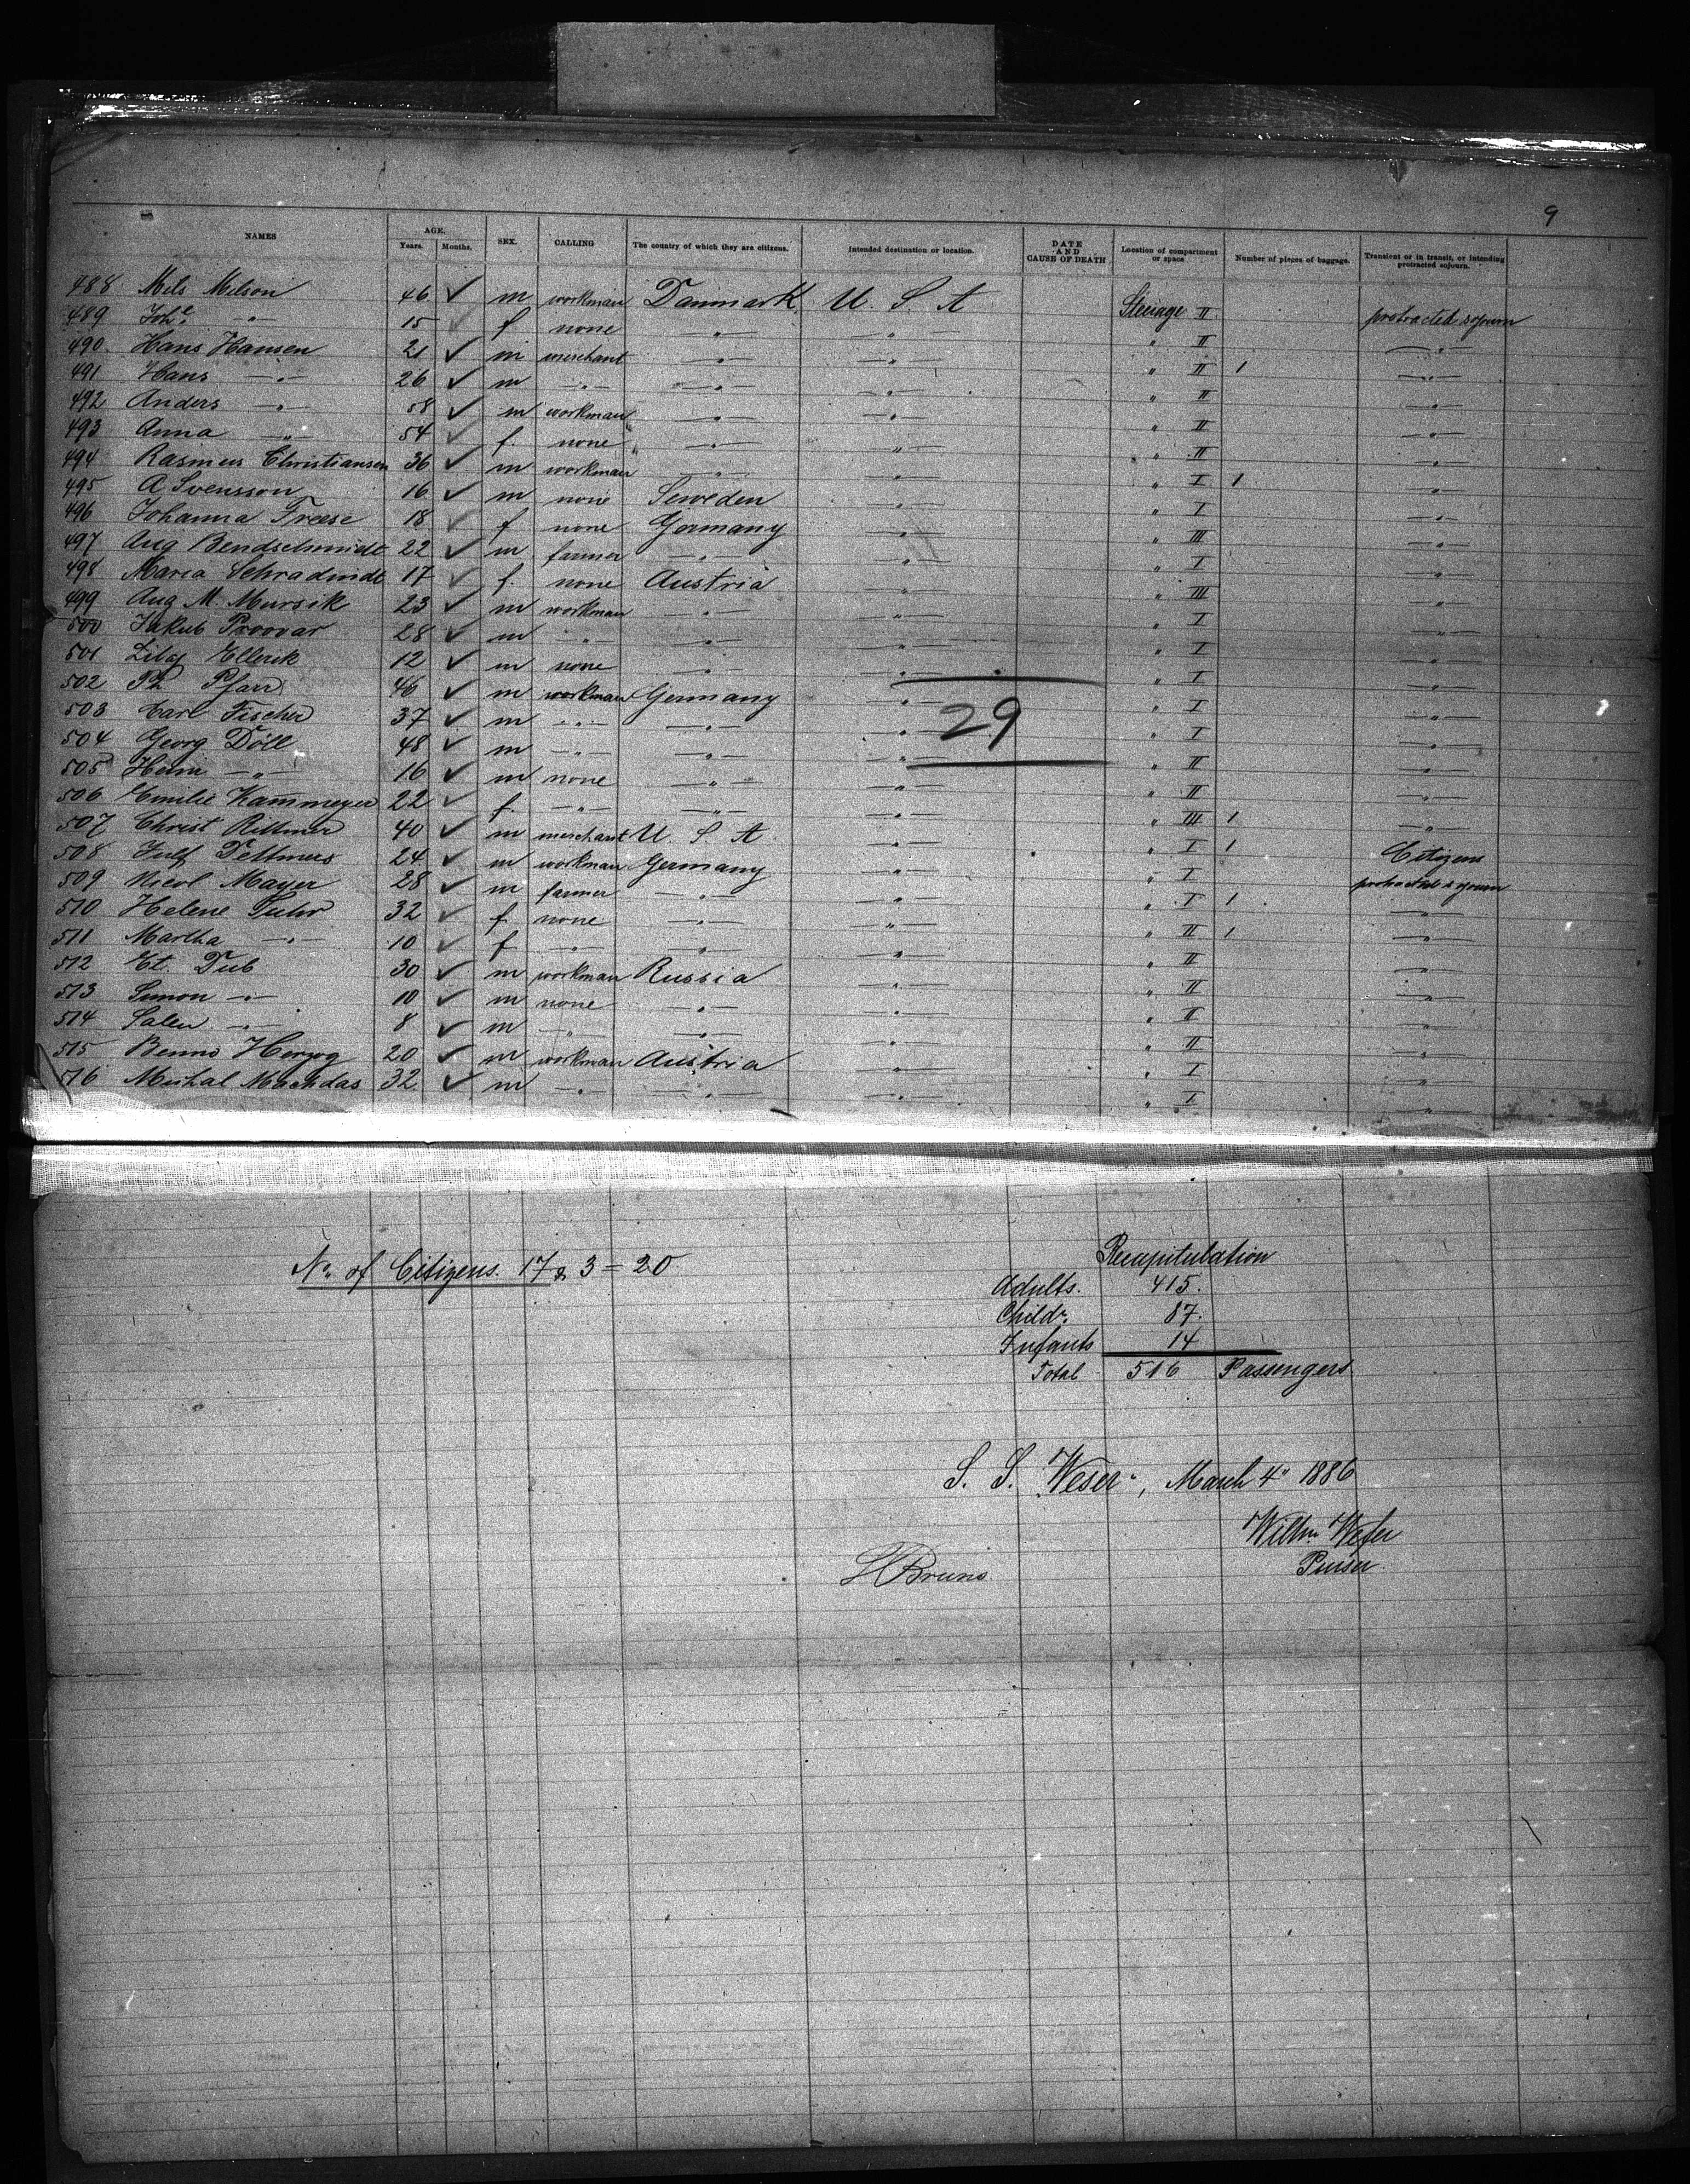 9
NAMES AGE. Years. Months. SEX. CALLING The country of which they are citizens. Intended destination or location. DATE AND CAUSE OF DEATH Location of compartment or space Number of pieces of baggage. Transient or in transit, or intending protracted sojourn.
488 Nels Nelson 46 ✓ m workman Danmark U. S. A Steerage II protracted sojourn
489 Joh.e —"— 15 ✓ f none " —"— " II —"—
490 Hans Hansen 21 ✓ m merchant —"— —"— " II 1 —"—
491 Hans —"— 26 ✓ m —"— —"— —"— " II —"—
492 Anders —"— 58 ✓ m workman —"— —"— " II —"—
493 Anna —"— 54 ✓ f. none —"— —"— " II —"—
494 Rasmus Christiansen 36 ✓ m workman —"— —"— " I 1 —"—
495 A Svensson 16 ✓ m none Seweden —"— " I —"—
496 Johanna Freese 18 ✓ f none Germany —"— " III —"—
497 Aug Bendschmidt 22 ✓ m farmer —"— —"— " I —"—
498 Maria Schradindt 17 ✓ f none Austria —"— " III —"—
499 Aug M. Mursik 23 ✓ m workman —"— —"— " I —"—
500 Jakub Proovar 28 ✓ m —"— —"— —"— " I —"—
501 Ellerik 12 ✓ m none —"— —"— " I —"—
502 Ph Pfarr 46 ✓ m workman Germany —"— " I —"—
503 Carl Fischer 37 ✓ m —"— —"— —"— " I —"—
29
504 Georg Döll 48 ✓ m —"— —"— —"— " II —"—
505 Heinr —"— 16 ✓ m none —"— —"— " II —"—
506 Emilie Kammeyer 22 ✓ f. —"— —"— —"— " III 1 —"—
507 Christ Rittmer 40 ✓ m merchant U. S. A. —"— " I 1 Citizens
508 Tettmers 24 ✓ m workman Germany —"— " I protracted sojourn
509 Nicol Mayer 28 ✓ m farmer —"— —"— " I 1 —"—
510 Helene Suhr 32 ✓ f none —"— —"— " II 1 —"—
511 Martha —"— 10 ✓ f —"— —"— —"— " II —"—
512 Et. Dub 30 ✓ m workman Russia —"— " II —"—
513 Simon —"— 10 ✓ m none —"— —"— " II —"—
514 Salen —"— 8 ✓ m —"— —"— —"— " II —"—
515 Benno Herzog 20 ✓ m workman Austria —"— " I —"—
516 Michal Machdas 32 ✓ m —"— —"— —"— " I —"—
No. of Citizens. 17 & 3 = 20
Recapitulation
Adults. 415.
Childr. 87.
Infants 14
Total 516 Passengers
S. S. "Weser", March 4" 1886
Wilhm. Wefer
Purser.
HBruns.